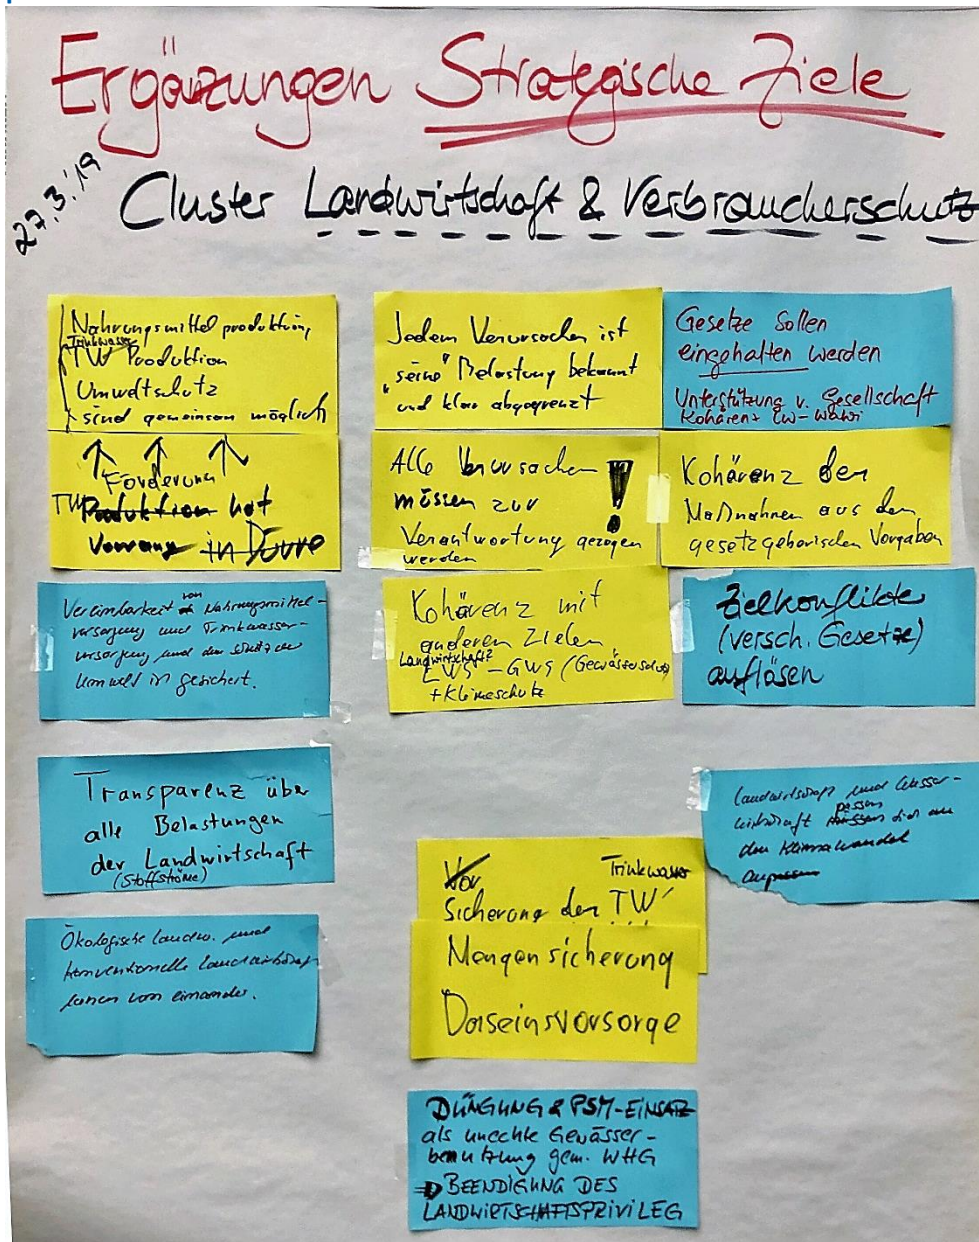 Ergänzungen Strategische Ziele
27.3.'19
Cluster Landwirtschaft & Verbraucherschutz
Nahrungsmittelproduktion,
Trinkwasser
TW Produktion
Umweltschutz
sind gemeinsam möglich
Forderung
TW Produktion hat
Vorrang in Dürre
Vereinbarkeit von Nahrungsmittel-
versorgung und Trinkwasser-
versorgung und der Schutz der
Umwelt ist gesichert.
Transparenz über
alle Belastungen
der Landwirtschaft
(Stoffströme)
Ökologische Landw. und
konventionelle Landwirtschaft
lernen von einander.
Jedem Verursacher ist
"seine" Belastung bekannt
und klar abgegrenzt
Alle Verursacher !
müssen zur
Verantwortung gezogen
werden
Kohärenz mit
anderen Zielen
Landwirtschaft?
LWS - GWS (Gewässerschutz)
+Klimaschutz
Vor Trinkwasser
Sicherung der TW
Mengensicherung
Daseinsvorsorge
DÜNGUNG & PSM-EINSATZ
als unechte Gewässer-
benutzung gem. WHG
⇒ BEENDIGUNG DES
LANDWIRTSCHAFTSPRIVILEG
Gesetze sollen
eingehalten werden
Unterstützung v. Gesellschaft
Kohärenz LW-WaWi
Kohärenz der
Maßnahmen aus den
gesetzgeberischen Vorgaben
Zielkonflikte
(versch. Gesetze)
auflösen
Landwirtschaft und Wasser-
passen
wirtschaft müssen sich an
den Klimawandel
anpassen